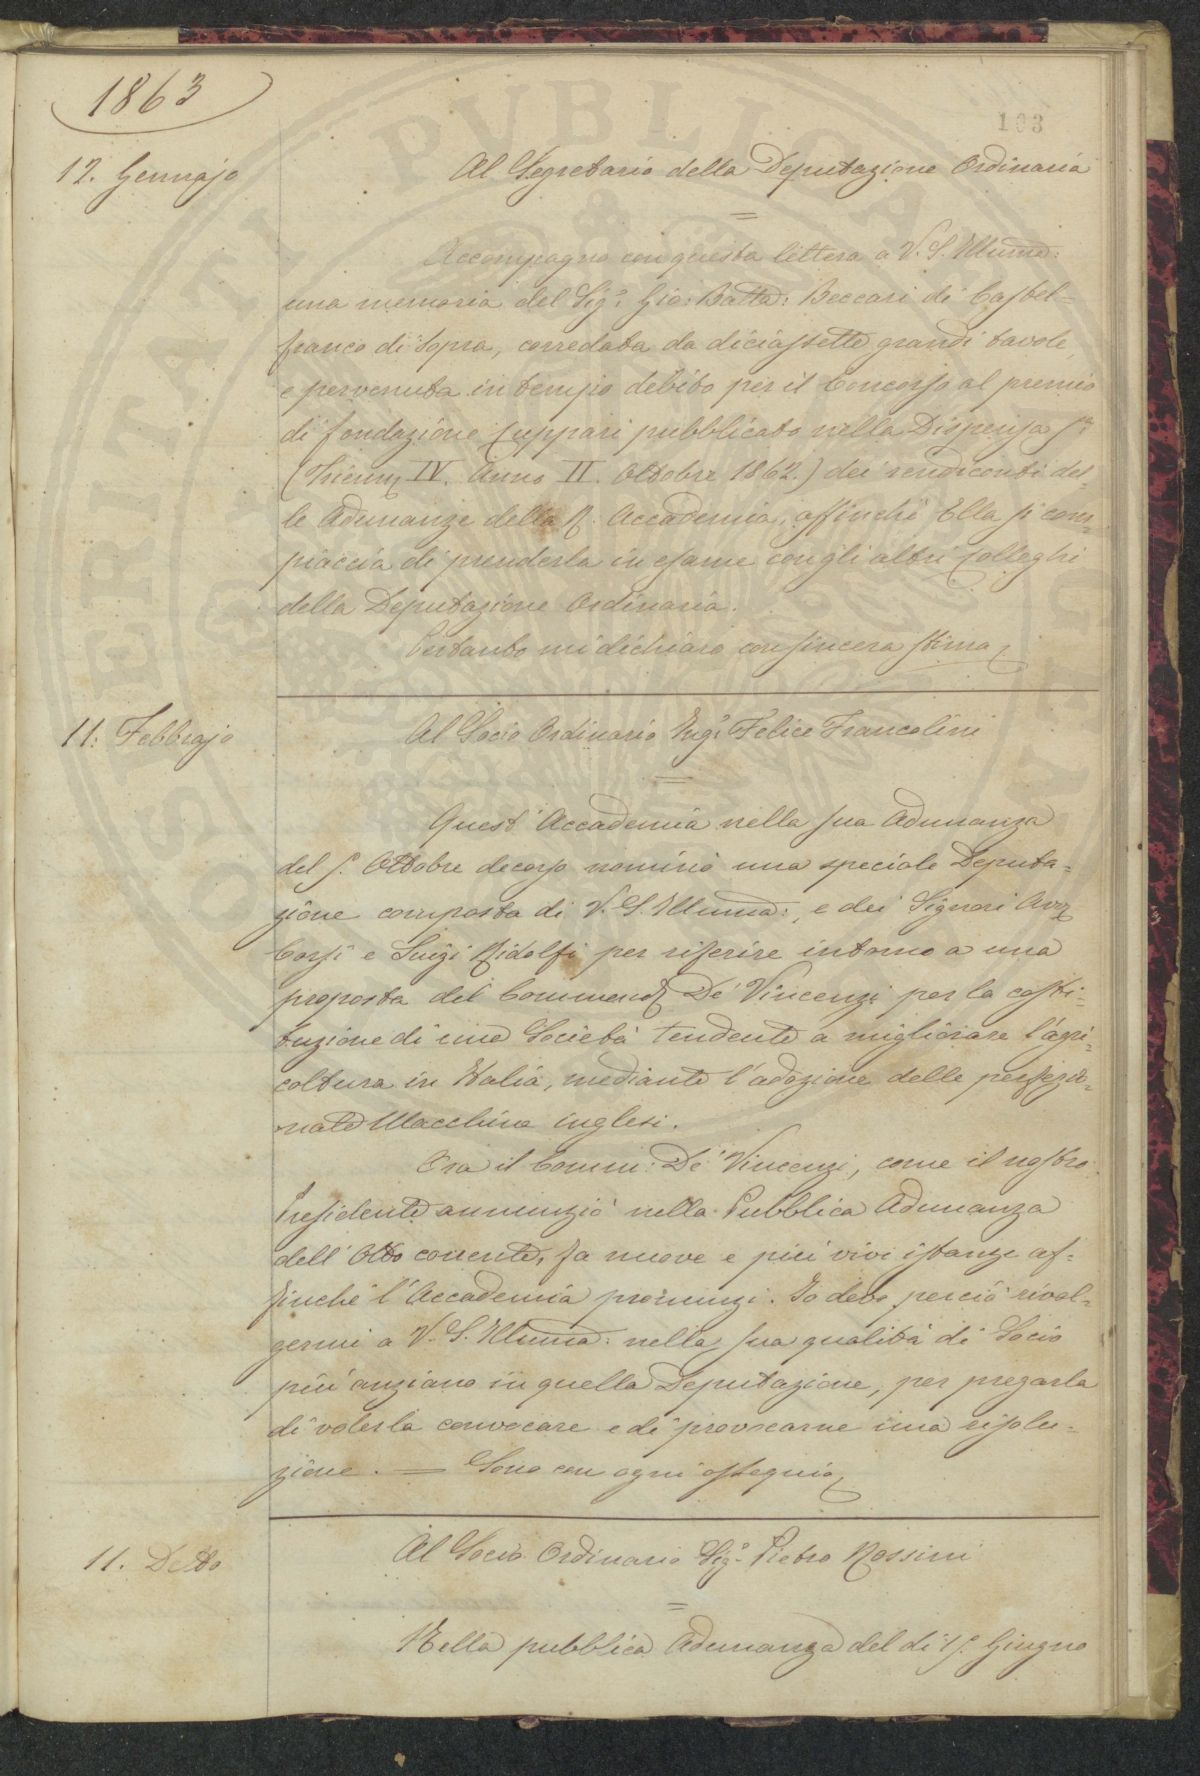 1863
103
12. Gennajo
Al Segretario della Deputazione Ordinaria
Accompagno con questa lettera a V. S. Illuma:
una memoria del Sigr. Gio: Batta: Beccari di Castel=
franco di sopra, corredata da diciassette grandi tavole,
e pervenuta in tempo debito per il Concorso al premio
di fondazione Cuppari pubblicato nella Dispensa 5a.
(Trienn IV. Anno II. Ottobre 1862.) dei rendiconti del-
le Adunanze della R. Accademia, affinchè Ella si com=
piaccia di prenderla in esame con gli altri Colleghi
della Deputazione Ordinaria.
Pertanto mi dichiaro con sincera stima
11: Febbrajo
Al Socio Ordinario Ingr. Felice Francolini
Quest' Accademia nella sua Adunanza
del 5. Ottobre decorso nominò una speciale Deputa=
zione composta di V. S. Illuma:, e dei Signori Avv
Corsi e Luigi Ridolfi per riferire intorno a una
proposta del Commend De' Vincenzi per la costi=
tuzione di una Società tendente a migliorare l'agri=
coltura in Italia, mediante l'adozione delle perfezio=
nate Macchine inglesi.
Ora il Comm: De' Vincenzi, come il nostro
Presidente annunziò nella Pubblica Adunanza
dell' Otto corrente, fa nuove e più vive istanze af=
finchè l'Accademia pronunzi. Io devo perciò rivol=
germi a V. S. Illuma: nella sua qualità di Socio
più anziano in quella Deputazione, per pregarla
di volerla convocare e di provocarne una risolu=
zione. = Sono con ogni ossequio
11. Detto
Al Socio Ordinario Sigr. Pietro Rossini
Nella pubblica Adunanza del dì 15. Giugno